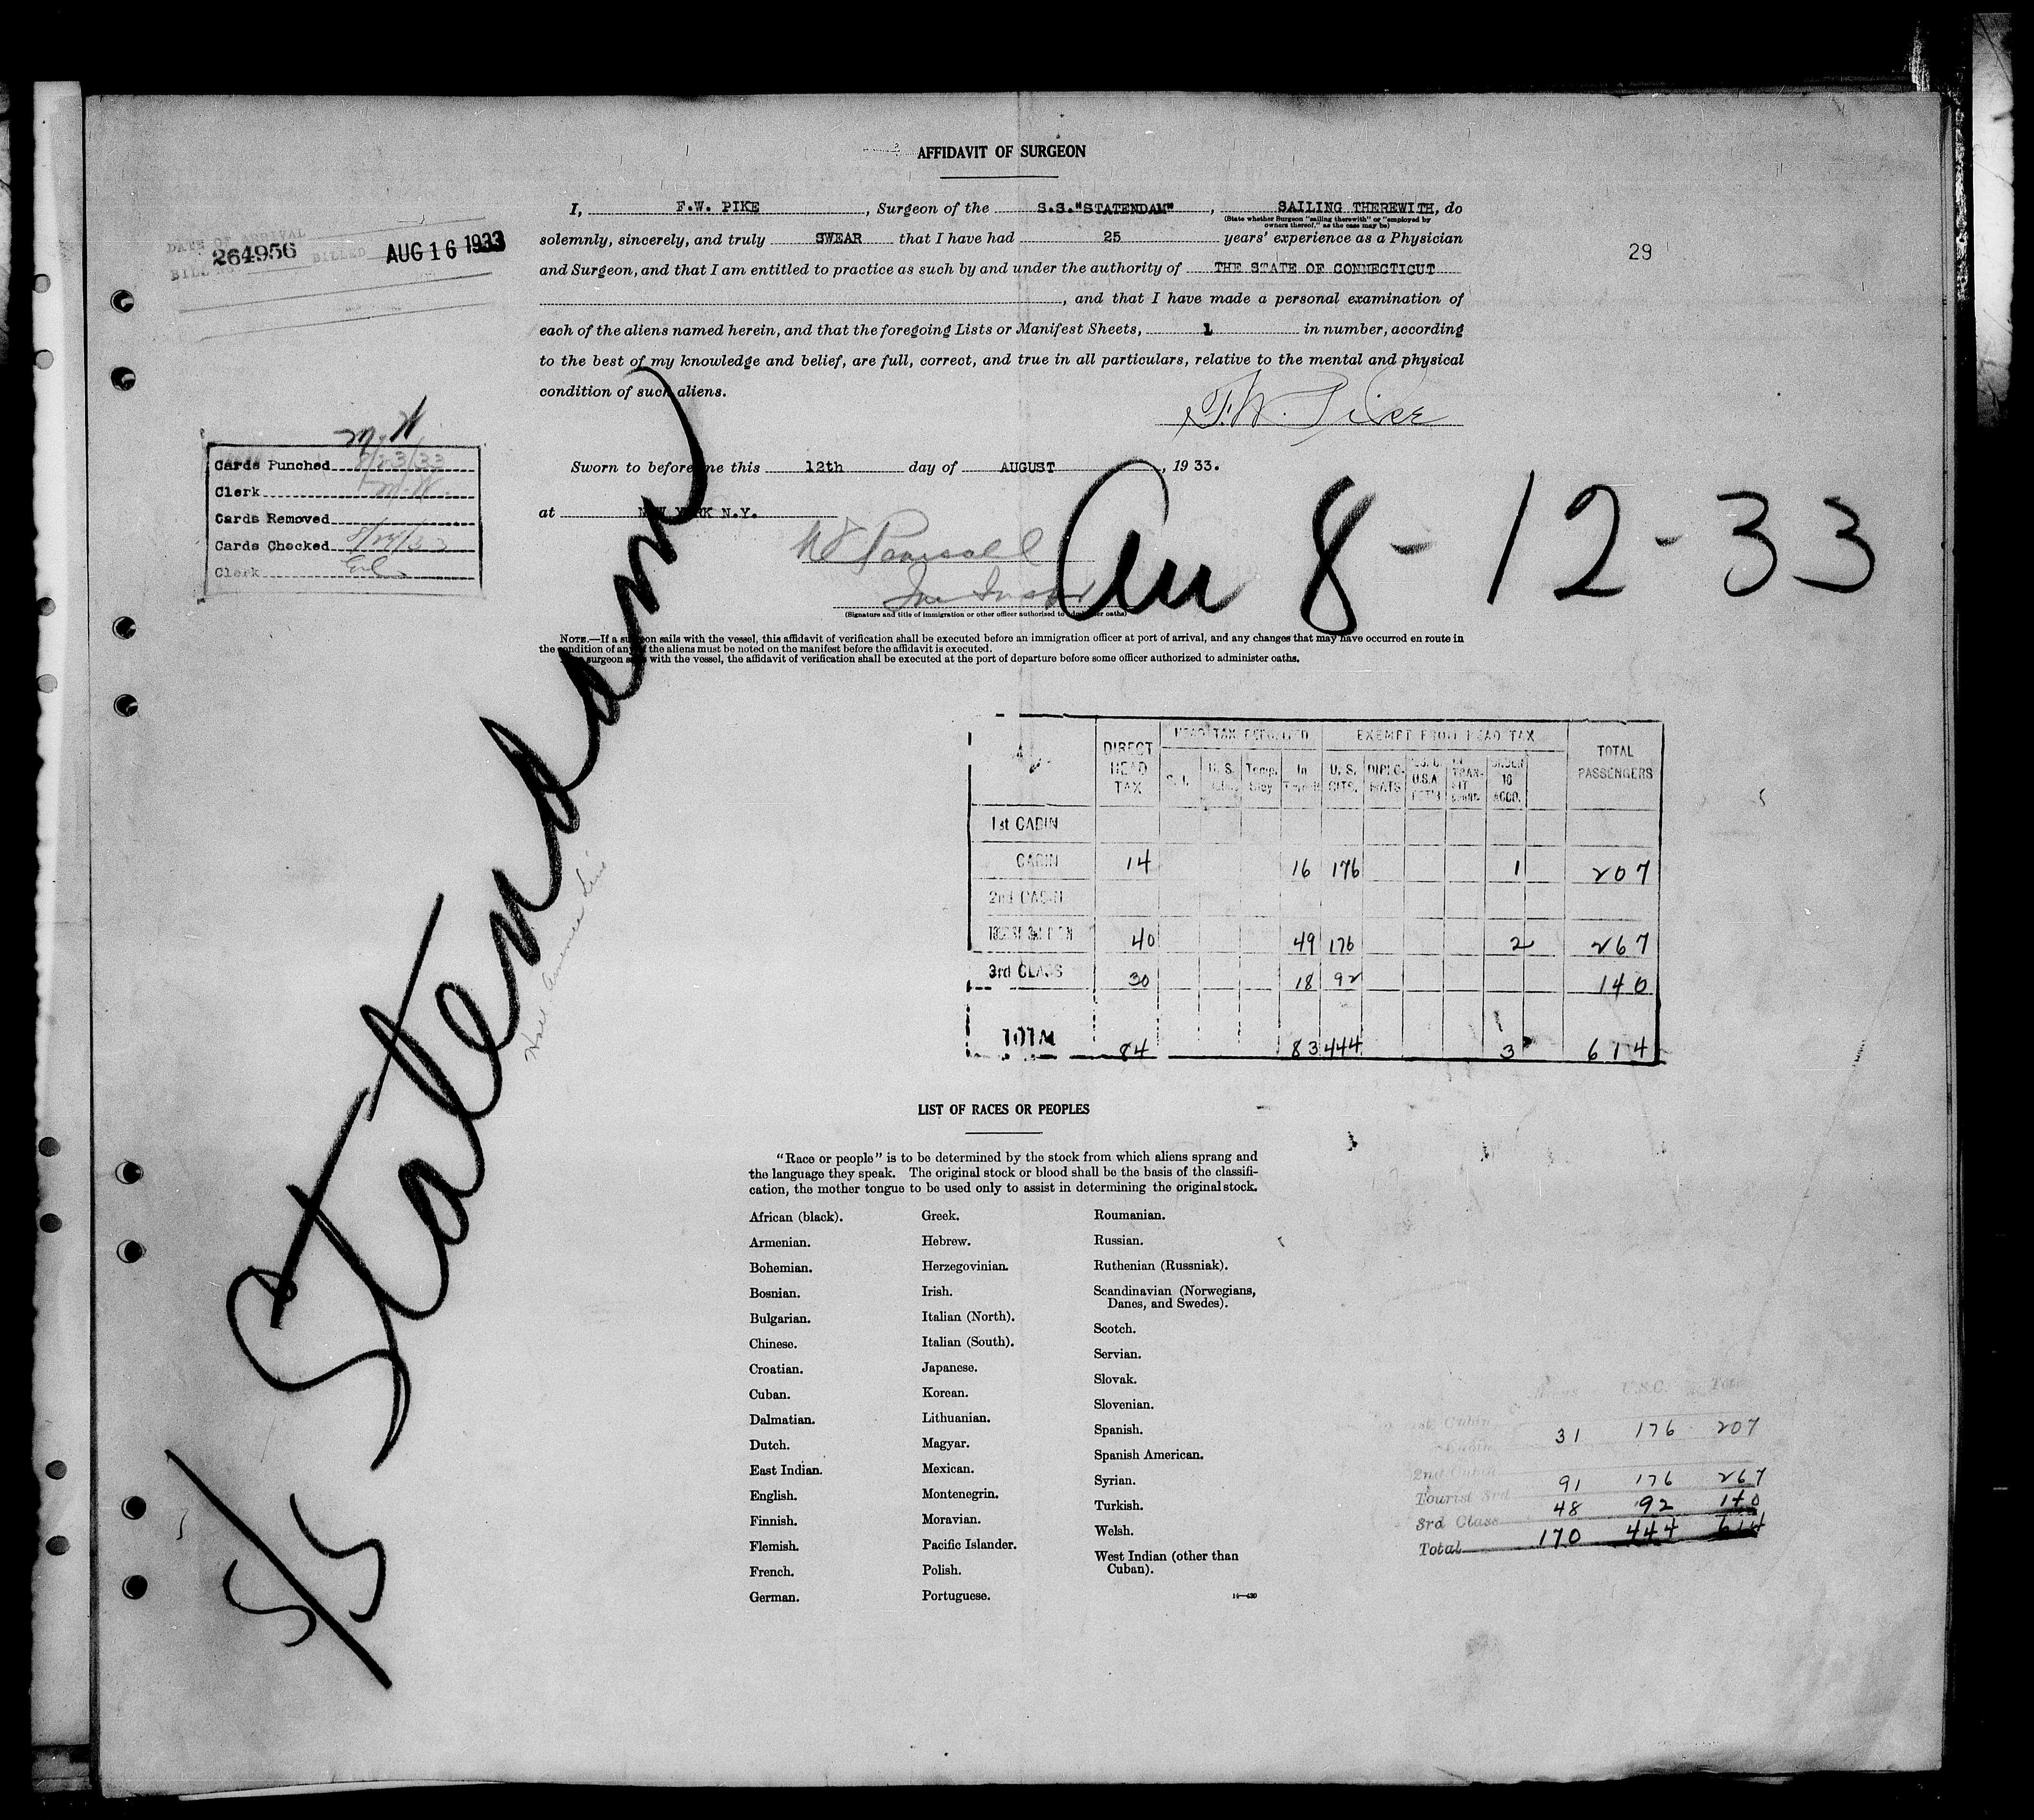 AFFIDAVIT OF SURGEON
I, F.W. PIKE, Surgeon of the S.S."STATENDAM", SAILING THEREWITH, do
(State whether Surgeon "sailing therewith" or "employed by
owners thereof," as the case may be)
solemnly, sincerely, and truly SWEAR that I have had 25 years' experience as a Physician
and Surgeon, and that I am entitled to practice as such by and under the authority of THE STATE OF CONNECTICUT
, and that I have made a personal examination of
each of the aliens named herein, and that the foregoing Lists or Manifest Sheets, 1 in number, according
to the best of my knowledge and belief, are full, correct, and true in all particulars, relative to the mental and physical
condition of such aliens.
F.W. Pike
Sworn to before me this 12th day of AUGUST, 1933.
at NEW YORK N.Y.
(Signature and title of immigration or other officer authorized to administer oaths)
NOTE.—If a surgeon sails with the vessel, this affidavit of verification shall be executed before an immigration officer at port of arrival, and any changes that may have occurred en route in
the condition of any of the aliens must be noted on the manifest before the affidavit is executed.
surgeon sails with the vessel, the affidavit of verification shall be executed at the port of departure before some officer authorized to administer oaths.
29
DATE OF ARRIVAL
264956 BILLED AUG 16 1933
M.W.
Cards Punched 8/23/33
Clerk M.W.
Cards Removed
Cards Checked
Clerk
Arr 8-12-33
S/S Statendam
Holl America Line
DIRECT HEAD TAX
HEAD TAX DEPOSITED
EXEMPT FROM HEAD TAX
TOTAL PASSENGERS
U.S. Temp. Stay In Transit U.S. CITS. DIPLO-MATS U.S.A. TRAN-SIT UNDER 16 ACCO.
1st CABIN
CABIN 14 16 176 1 207
2nd CABIN
TOURIST 3rd CABIN 40 49 176 2 267
3rd CLASS 30 18 92 140
TOTAL 84 83 444 3 614
LIST OF RACES OR PEOPLES
"Race or people" is to be determined by the stock from which aliens sprang and
the language they speak. The original stock or blood shall be the basis of the classifi-
cation, the mother tongue to be used only to assist in determining the original stock.
African (black).
Armenian.
Bohemian.
Bosnian.
Bulgarian.
Chinese.
Croatian.
Cuban.
Dalmatian.
Dutch.
East Indian.
English.
Finnish.
Flemish.
French.
German.
Greek.
Hebrew.
Herzegovinian.
Irish.
Italian (North).
Italian (South).
Japanese.
Korean.
Lithuanian.
Magyar.
Mexican.
Montenegrin.
Moravian.
Pacific Islander.
Polish.
Portuguese.
Roumanian.
Russian.
Ruthenian (Russniak).
Scandinavian (Norwegians,
Danes, and Swedes).
Scotch.
Servian.
Slovak.
Slovenian.
Spanish.
Spanish American.
Syrian.
Turkish.
Welsh.
West Indian (other than
Cuban).
14—430
U.S.C. Total
Cabin 31 176 207
2nd Cabin
Tourist 3rd 91 176 267
3rd Class 48 92 140
Total 170 444 614